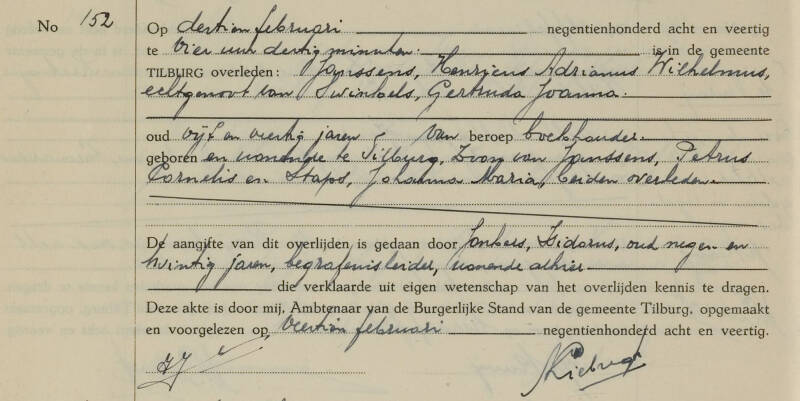 No 152
Op dertien februari negentienhonderd acht en veertig
te vier uur dertig minuten. is in de gemeente
TILBURG overleden: Janssens, Henricus Adrianus Wilhelmus,
echtgenoot van Swinkels, Gertruda Joanna.
oud vijf en veertig jaren, van beroep boekhouder.
geboren en wonende te Tilburg, Zoon van Janssens, Petrus
Cornelis en Staps, Johanna Maria, beiden overleden.
De aangifte van dit overlijden is gedaan door Jonkers, Isidorus, oud negen en
twintig jaren, begrafenisleider, wonende alhier
die verklaarde uit eigen wetenschap van het overlijden kennis te dragen.
Deze akte is door mij, Ambtenaar van de Burgerlijke Stand van de gemeente Tilburg, opgemaakt
en voorgelezen op veertien februari negentienhonderd acht en veertig.